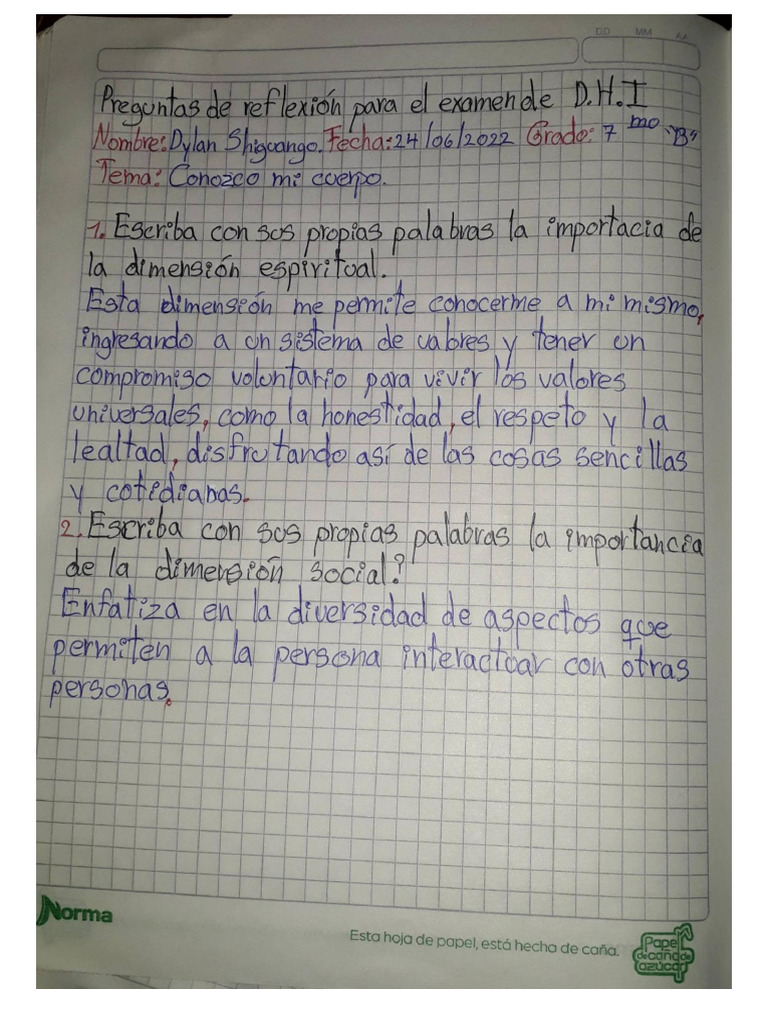 DD MM AA
Preguntas de reflexión para el examen de D.H.I
Nombre: Dylan Shiguango. Fecha: 24/06/2022 Grado: 7 mo "B"
Tema: Conozco mi cuerpo.
1. Escriba con sus propias palabras la importacia de
la dimensión espiritual.
Esta dimensión me permite conocerme a mi mismo,
ingresando a un sistema de valores y tener un
compromiso voluntario para vivir los valores
universales, como la honestidad, el respeto y la
lealtad, disfrutando así de las cosas sencillas
y cotidianas.
2. Escriba con sus propias palabras la importancia
de la dimensión social?
Enfatiza en la diversidad de aspectos que
permiten a la persona interactuar con otras
personas.
Norma
Esta hoja de papel, está hecha de caña.
Papel
de caña de
azúcar